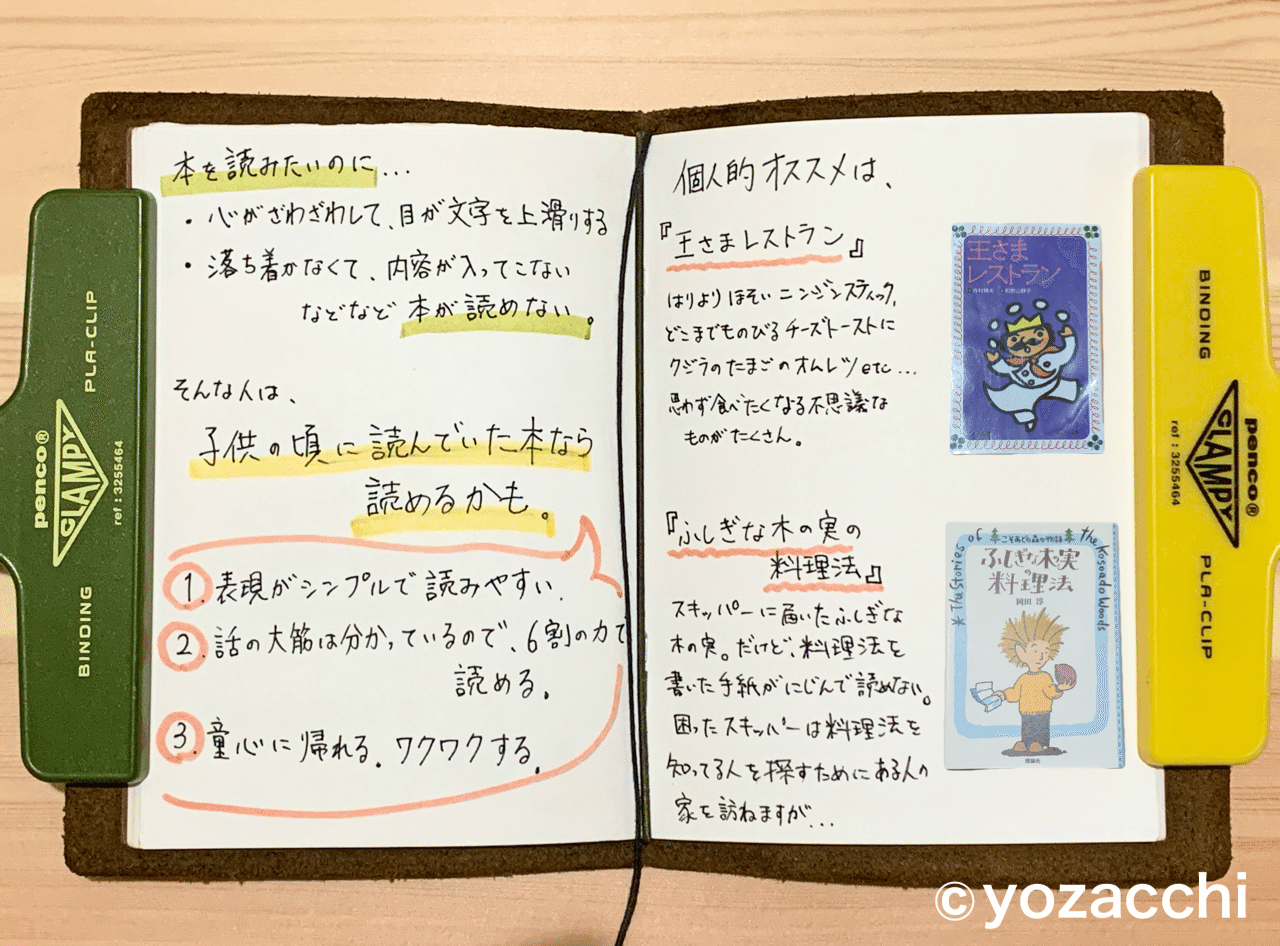 本を読みたいのに...
・心がざわざわして、目が文字を上滑りする
・落ち着かなくて、内容が入ってこない
などなど 本が読めない。
そんな人は、
子供の頃に読んでいた本なら
読めるかも。
1. 表現がシンプルで読みやすい.
2. 話の大筋は分かっているので、6割の力で
読める.
3. 童心に帰れる. ワクワクする.
個人的オススメは、
『王さまレストラン』
はりよりほそいニンジンスティック,
どこまでものびるチーズトーストに
クジラのたまごのオムレツ etc...
思わず食べたくなる不思議な
ものがたくさん。
王さま
レストラン
寺村輝夫 和歌山静子
『ふしぎな木の実の
料理法』
スキッパーに届いたふしぎな
木の実。だけど、料理法を
書いた手紙がにじんで読めない。
困ったスキッパーは料理法を
知ってる人を探すためにある人の
家を訪ねますが...
こそあどの森の物語
*The Stories of the Kosoado Woods
ふしぎな木の実の
料理法
岡田 淳
理論社
BINDING PLA-CLIP
penco®
CLAMPY
ref : 3255464
BINDING PLA-CLIP
penco®
CLAMPY
ref : 3255464
©yozacchi